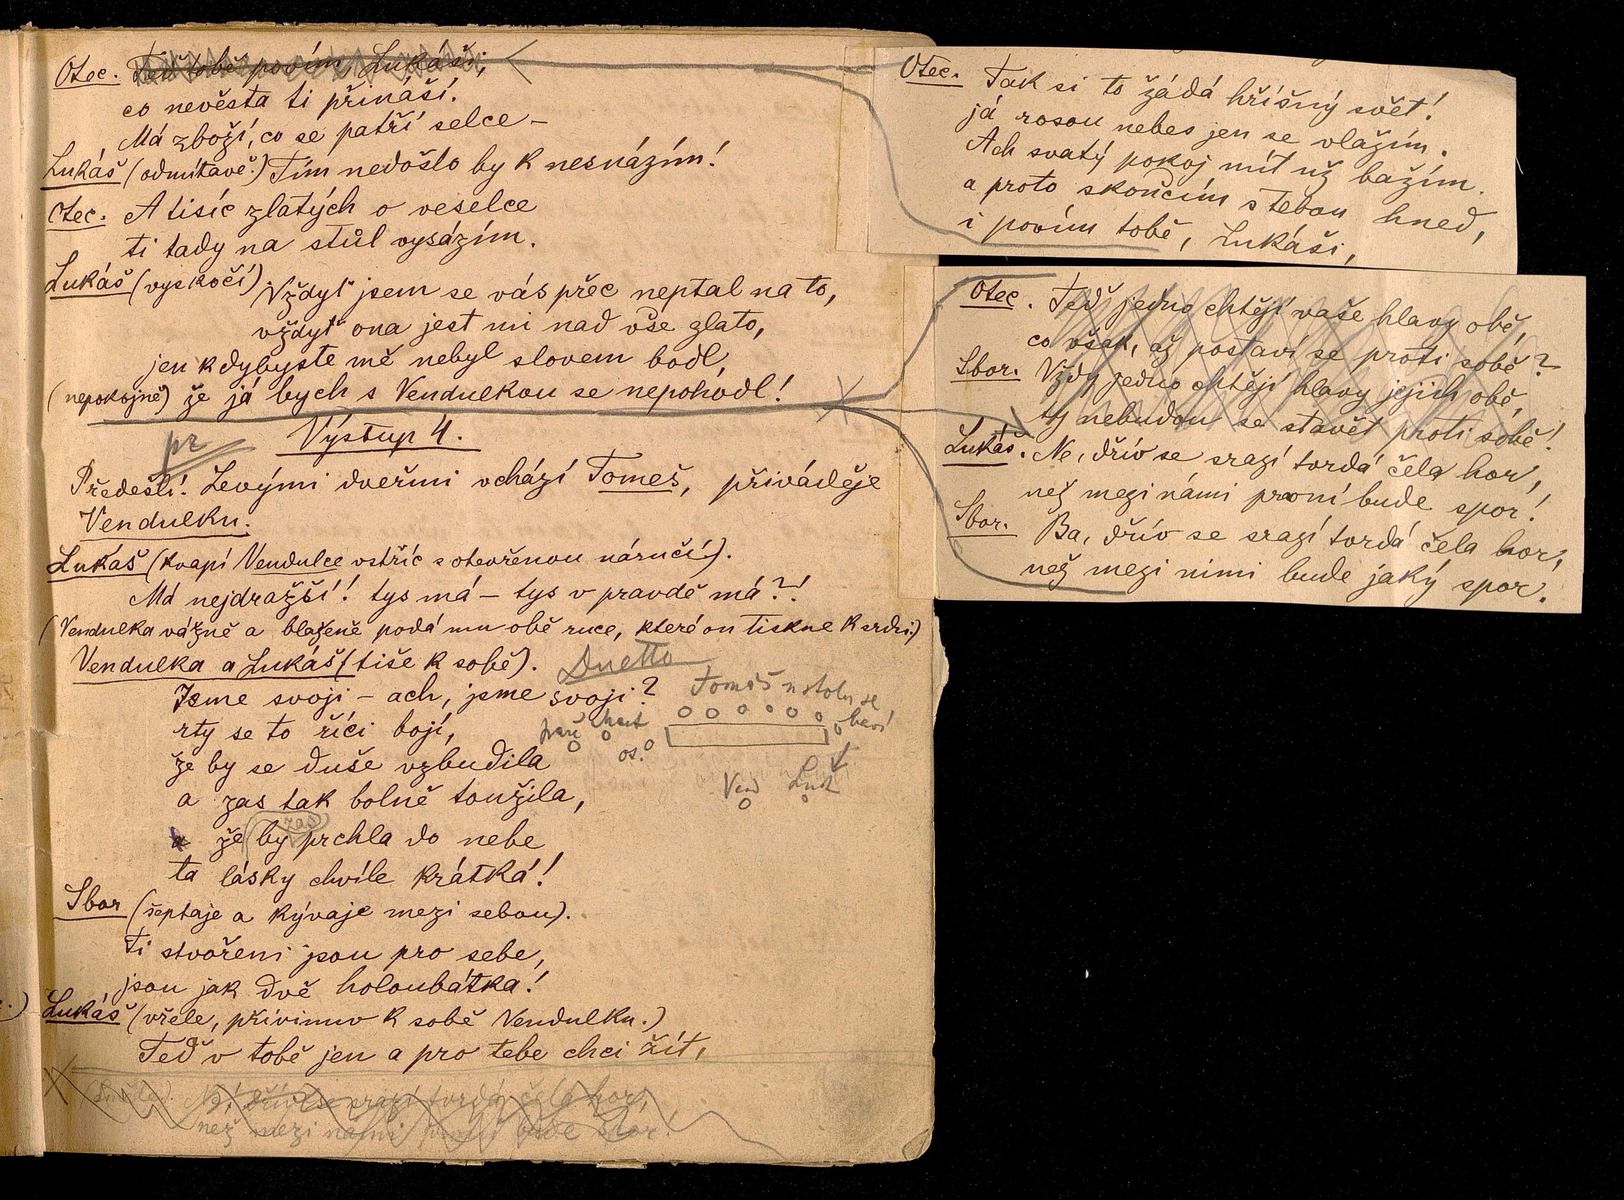 Otec. Teď tobě povím, Lukáši,
co nevěsta ti přináší.
Má zboží, co se patří selce –
Lukáš (odmítavě.) Tím nedošlo by k nesnázím!
Otec. A tisíc zlatých o veselce
ti tady na stůl vysázím.
Lukáš (vyskočí) Vždyť jsem se vás přec neptal na to,
vždyť ona jest mi nad vše zlato,
jen kdybyste mě nebyl slovem bodl,
(nepokojně) že já bych s Vendulkou se nepohodl!
Výstup 4.
pr
Předešlí! Levými dveřmi vchází Tomeš, přiváděje
Vendulku.
Lukáš (kvapí Vendulce vstříc s otevřenou náručí).
Má nejdražší! tys má – tys v pravdě má?!
(Vendulka vážně a blaženě podá mu obě ruce, které on tiskne k srdci)
Vendulka a Lukáš (tiše k sobě). Duetto
Jsme svoji – ach, jsme svoji?
rty se to říci bojí,
že by se duše vzbudila
a zas tak bolně toužila,
že by prchla do nebe
zas
ta lásky chvíle krátká!
Tomeš u stolu se
baví
os.
Ven Luk
Sbor (šeptaje a kývaje mezi sebou).
Ti stvořeni jsou pro sebe,
jsou jak dvě holoubátka!
Lukáš (vřele, přivinuv k sobě Vendulku.)
Teď v tobě jen a pro tebe chci žít,
Ne, dřív se srazí tvrdá čela hor,
než mezi námi první bude spor.
Otec. Tak si to žádá hříšný svět!
já rosou nebes jen se vlažím.
Ach svatý pokoj mít už bažím.
a proto skončím s tebou hned,
i povím tobě, Lukáši,
Otec. Teď jedno chtějí vaše hlavy obě,
co však, až postaví se proti sobě?
Sbor. Vždy jedno chtějí hlavy jejich obě,
ty nebudou se stavět proti sobě!
Lukáš. Ne, dřív se srazí tvrdá čela hor,
než mezi námi první bude spor!
Sbor. Ba, dřív se srazí tvrdá čela hor,
než mezi nimi bude jaký spor.